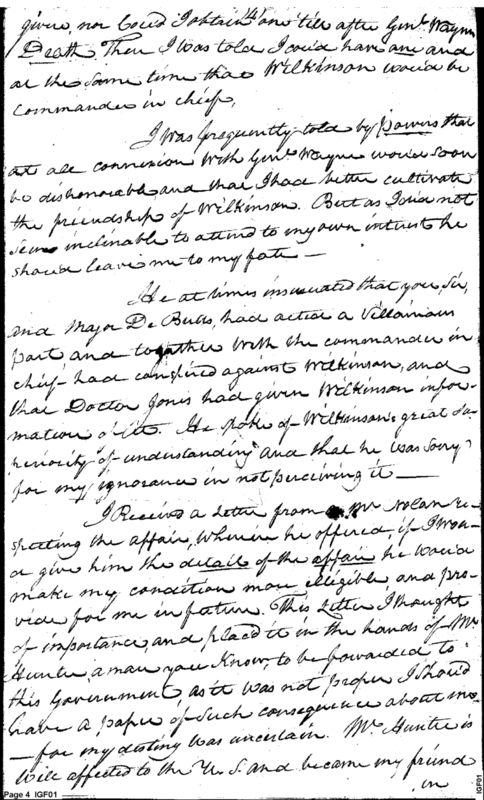 (4)
given, nor Could I obtain one till after Genl. Wayns
Death. Then I was told I could have one and
at the same time that Wilkinson would be
Commander in chief,
I was frequently told by powers that
at all connexion with Genl. Wayne would soon
be dishonorable, and that I had better cultivate
the friendship of Wilkinson. But as I did not
seem inclinable to attend to my own intrest he
should leave me to my fate —
He at times insinuated that you, Sir,
and Major De Butts, had acted a Villainious
part and together with the commander in
chief had conspired against Wilkinson, and
that Doctor Jones had given Wilkinson infor-
mation of it. He spoke of Wilkinsons great Su-
periority of understanding and that he was sorry
for my ignorance in not perceiving it —
I Received a Letter from Mr Nolan re-
specting the affair, wherein he offered, if I wou-
d give him the detail of the affair he would
make my condition more illigible and pro-
vide for me in future. This Letter I thought
of importance, and placed it in the hands of Mr
Hunter, a man you Know, to be forwarded to
this Government as it was not proper I should
have a paper of such consequence about me
— for my distiny was uncertain. Mr Hunter is
well affected to the U. S. and became my friend
in
Page 4 IGF01
IGF01